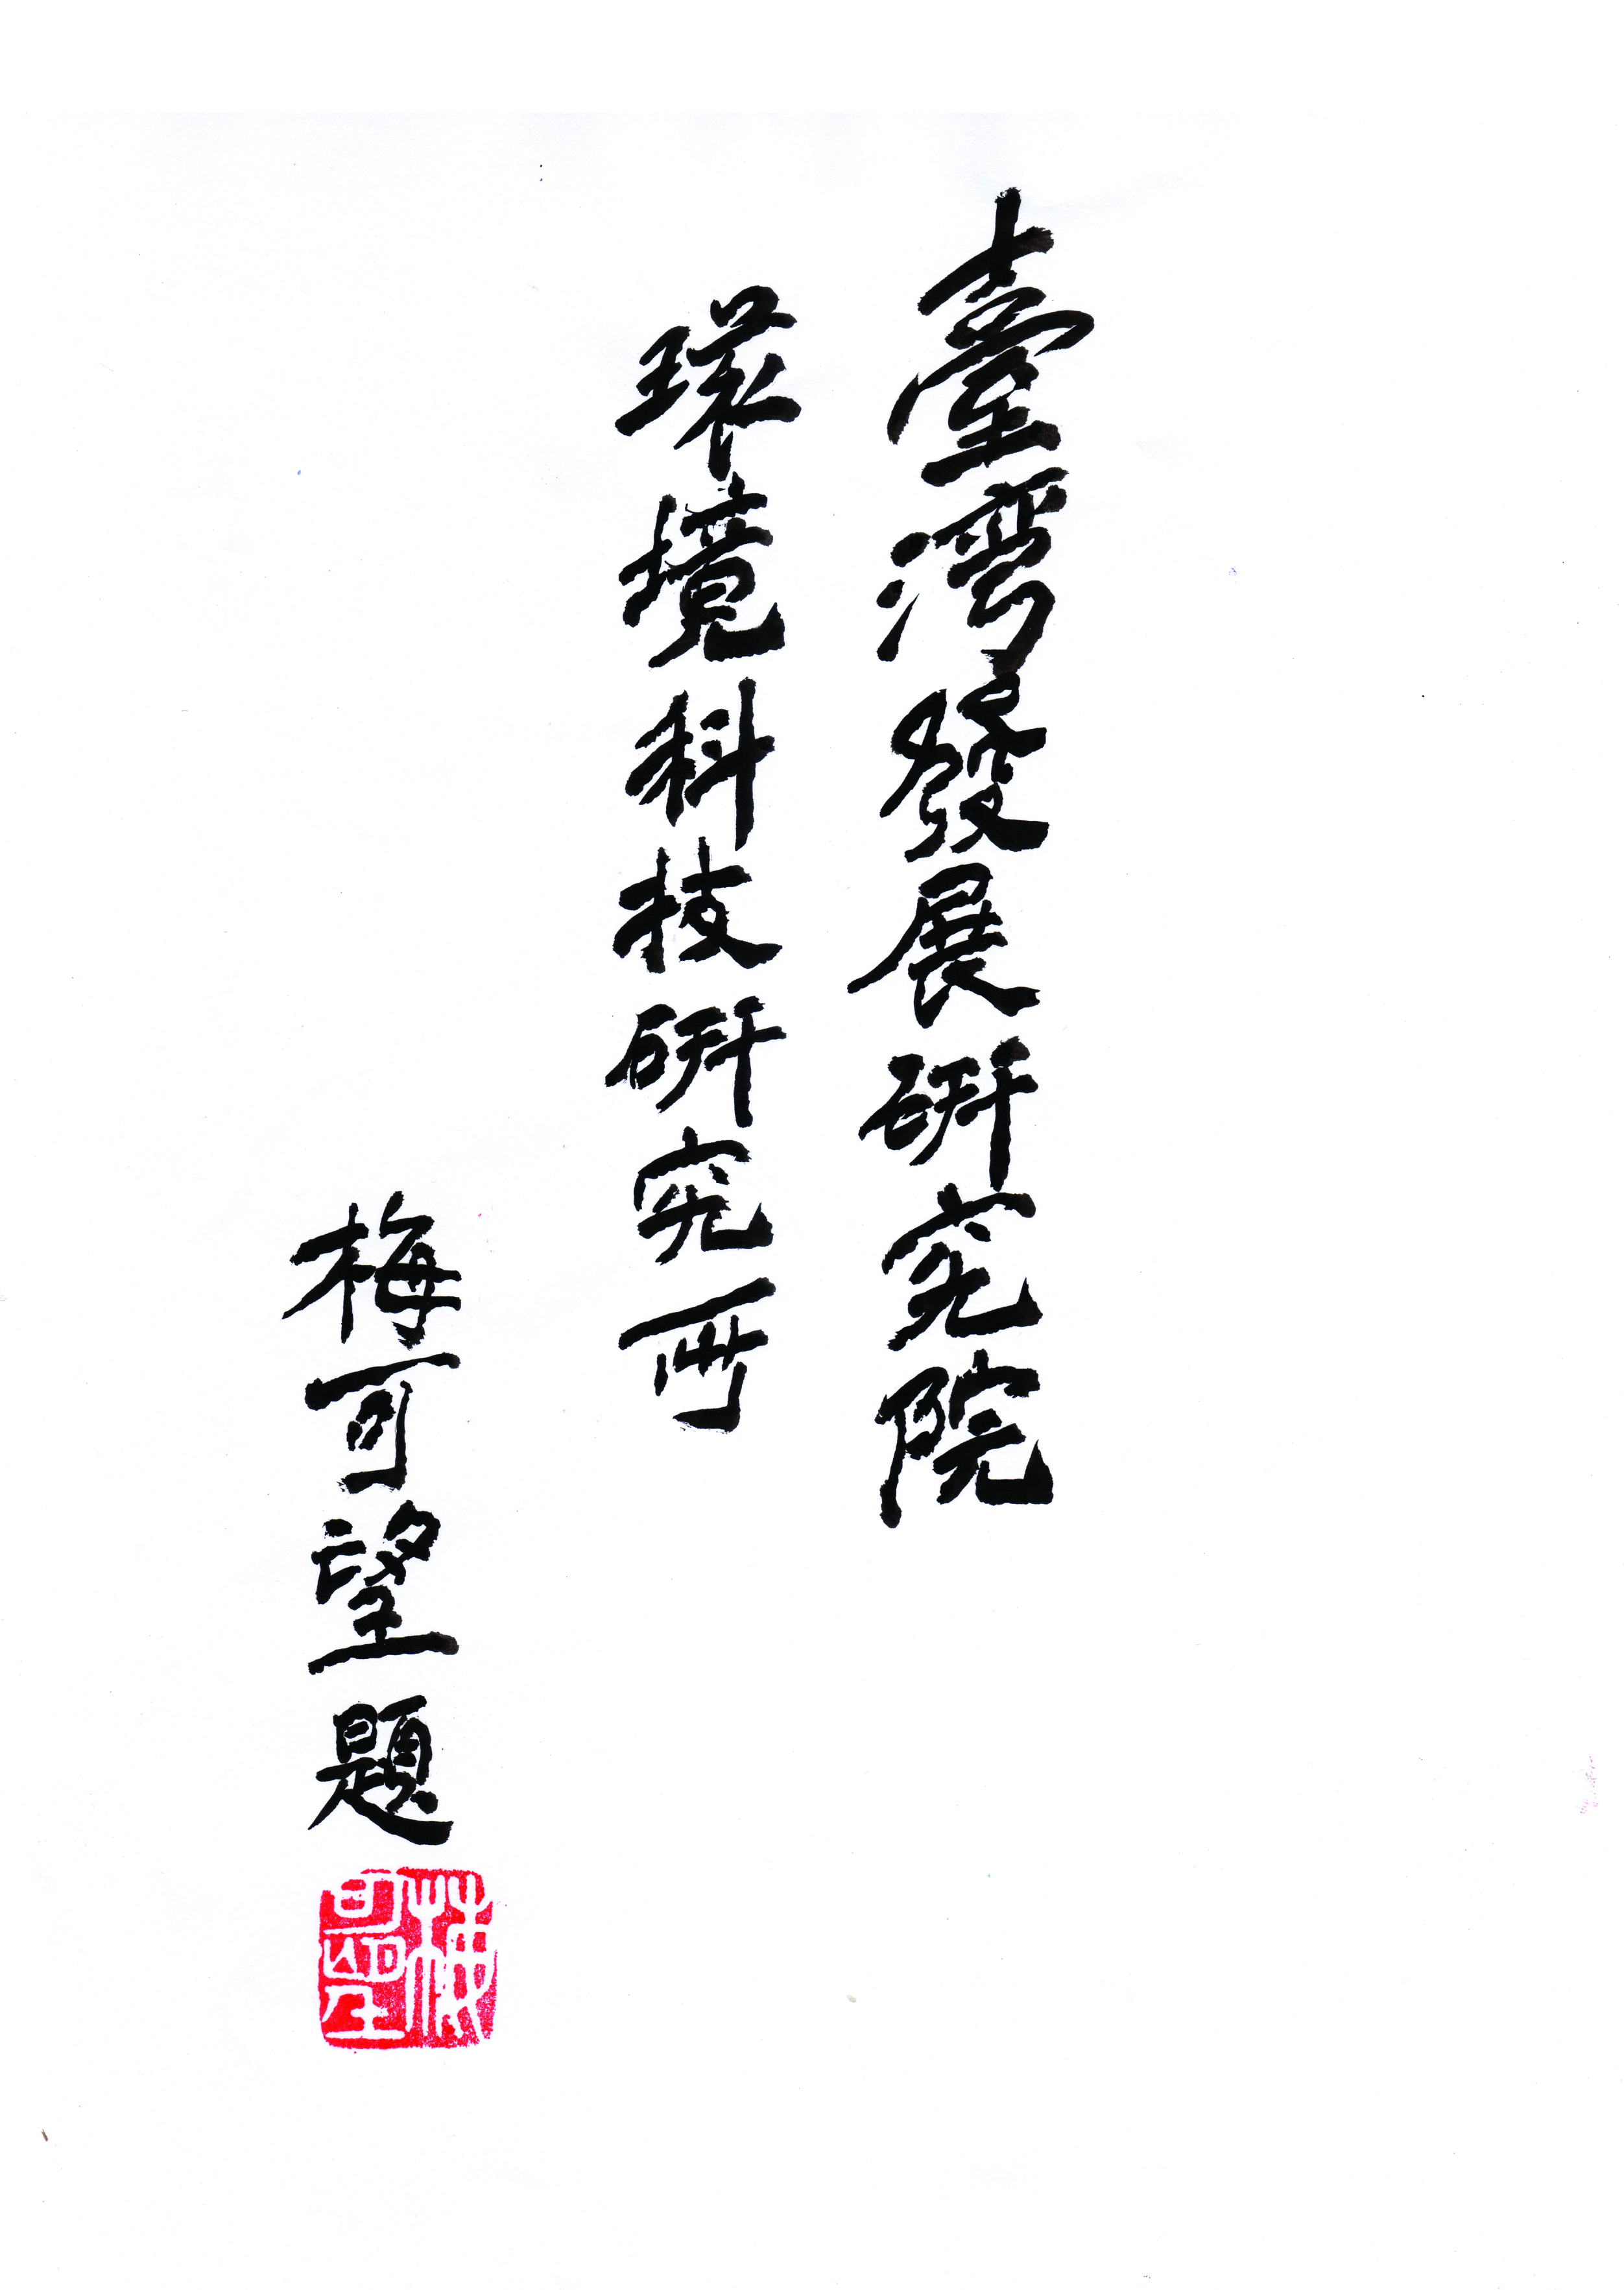 臺灣發展研究院
環境科技研究所
梅可望題
梅可望